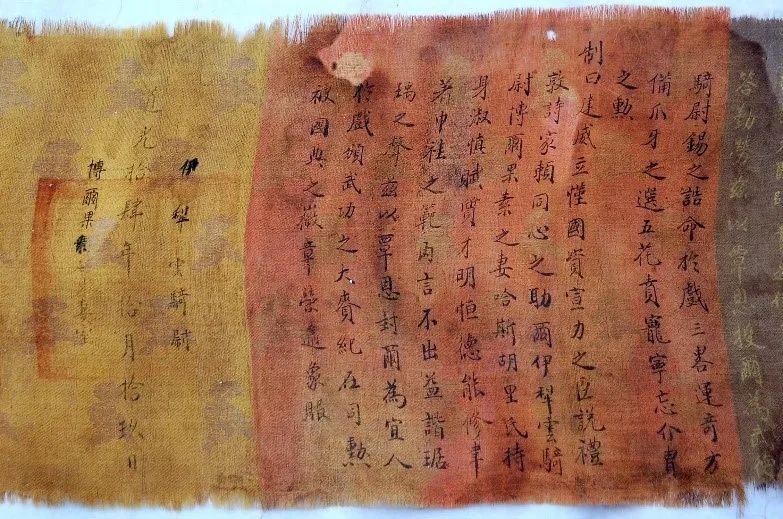 答勤勞茲以覃恩授爾為武德
騎尉錫之誥命於戲三畧運奇方
備爪牙之選五花賁寵寧忘介冑
之勲
制曰建威立懂國資宣力之臣説禮
敦詩家賴同心之助爾伊犁雲騎
尉博爾果素之妻哈斯胡里氏持
身淑慎賦質才明恒德能修聿
著巾雖之範內言不出益諧琚
瑀之聲茲以覃恩封爾為宜人
於戲頌武功之大賚紀在司勲
被國典之徽章榮逾象服
伊犁雲騎尉
道光拾肆年拾月拾玖日
博爾果素之妻